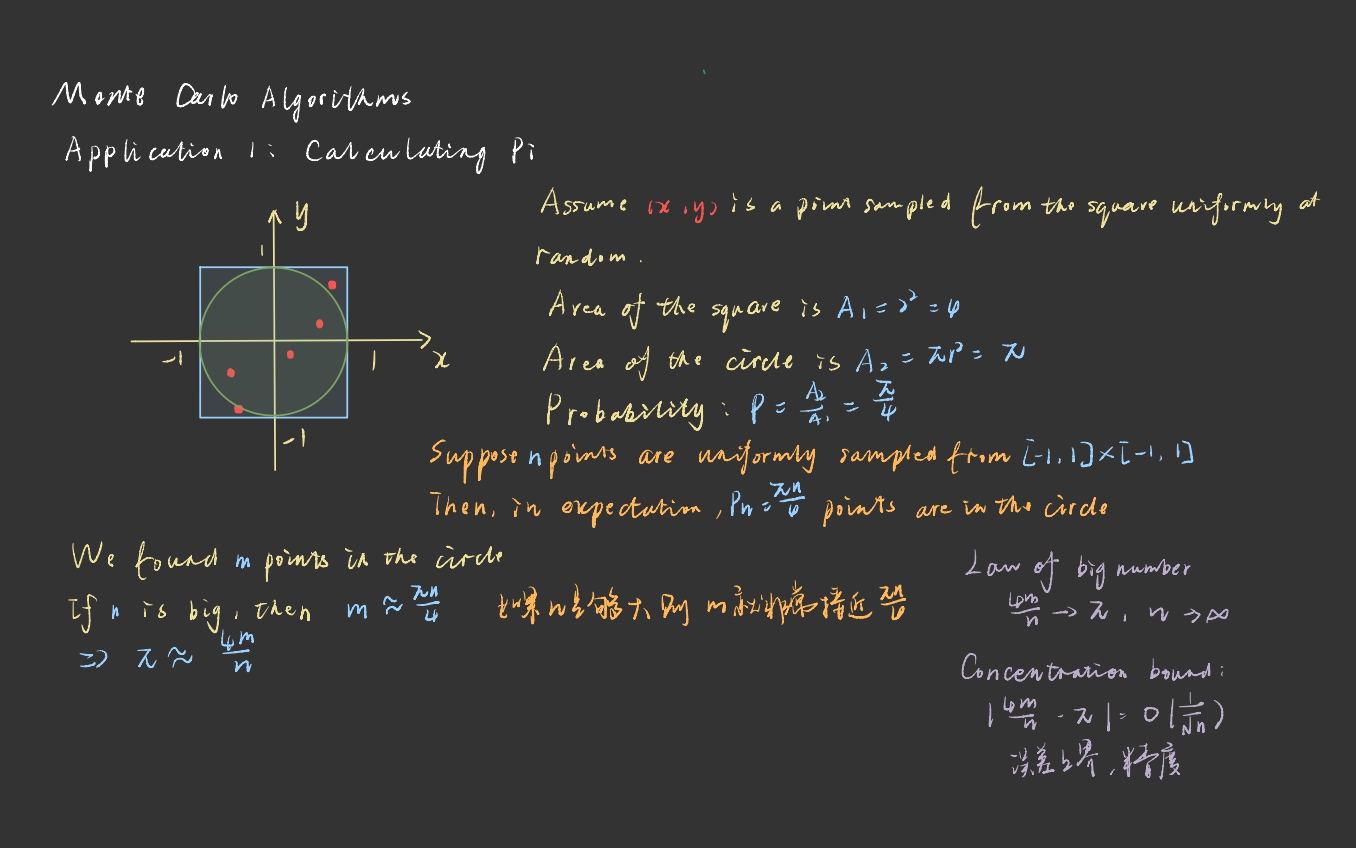 Monte Carlo Algorithms
Application 1: Calculating Pi
y
1
-1
1
x
-1
Assume (x, y) is a point sampled from the square uniformly at
random.
Area of the square is A₁ = 2² = 4
Area of the circle is A₂ = πr² = π
Probability: P = A₂/A₁ = π/4
Suppose n points are uniformly sampled from [-1, 1]×[-1, 1]
Then, in expectation, Pn = πn/4 points are in the circle
We found m points in the circle
If n is big, then m ≈ πn/4 如果n足够大则m就非常接近πn/4
⇒ π ≈ 4m/n
Law of big number
4m/n → π, n → ∞
Concentration bound:
|4m/n - π| = O(1/√n)
误差上界,精度